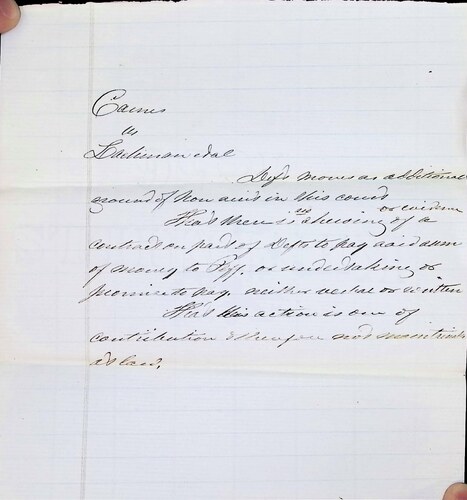 Caines
vs
Lachman et al
Defts moves as additional
ground of non suit in this cause
That there is no showing or evidence of a
contract on part of Deft to pay said sum
of money to Plff. or undertaking or
promise to pay. neither verbal or written
That this action is one of
contribution & therefore not maintainable
at law.